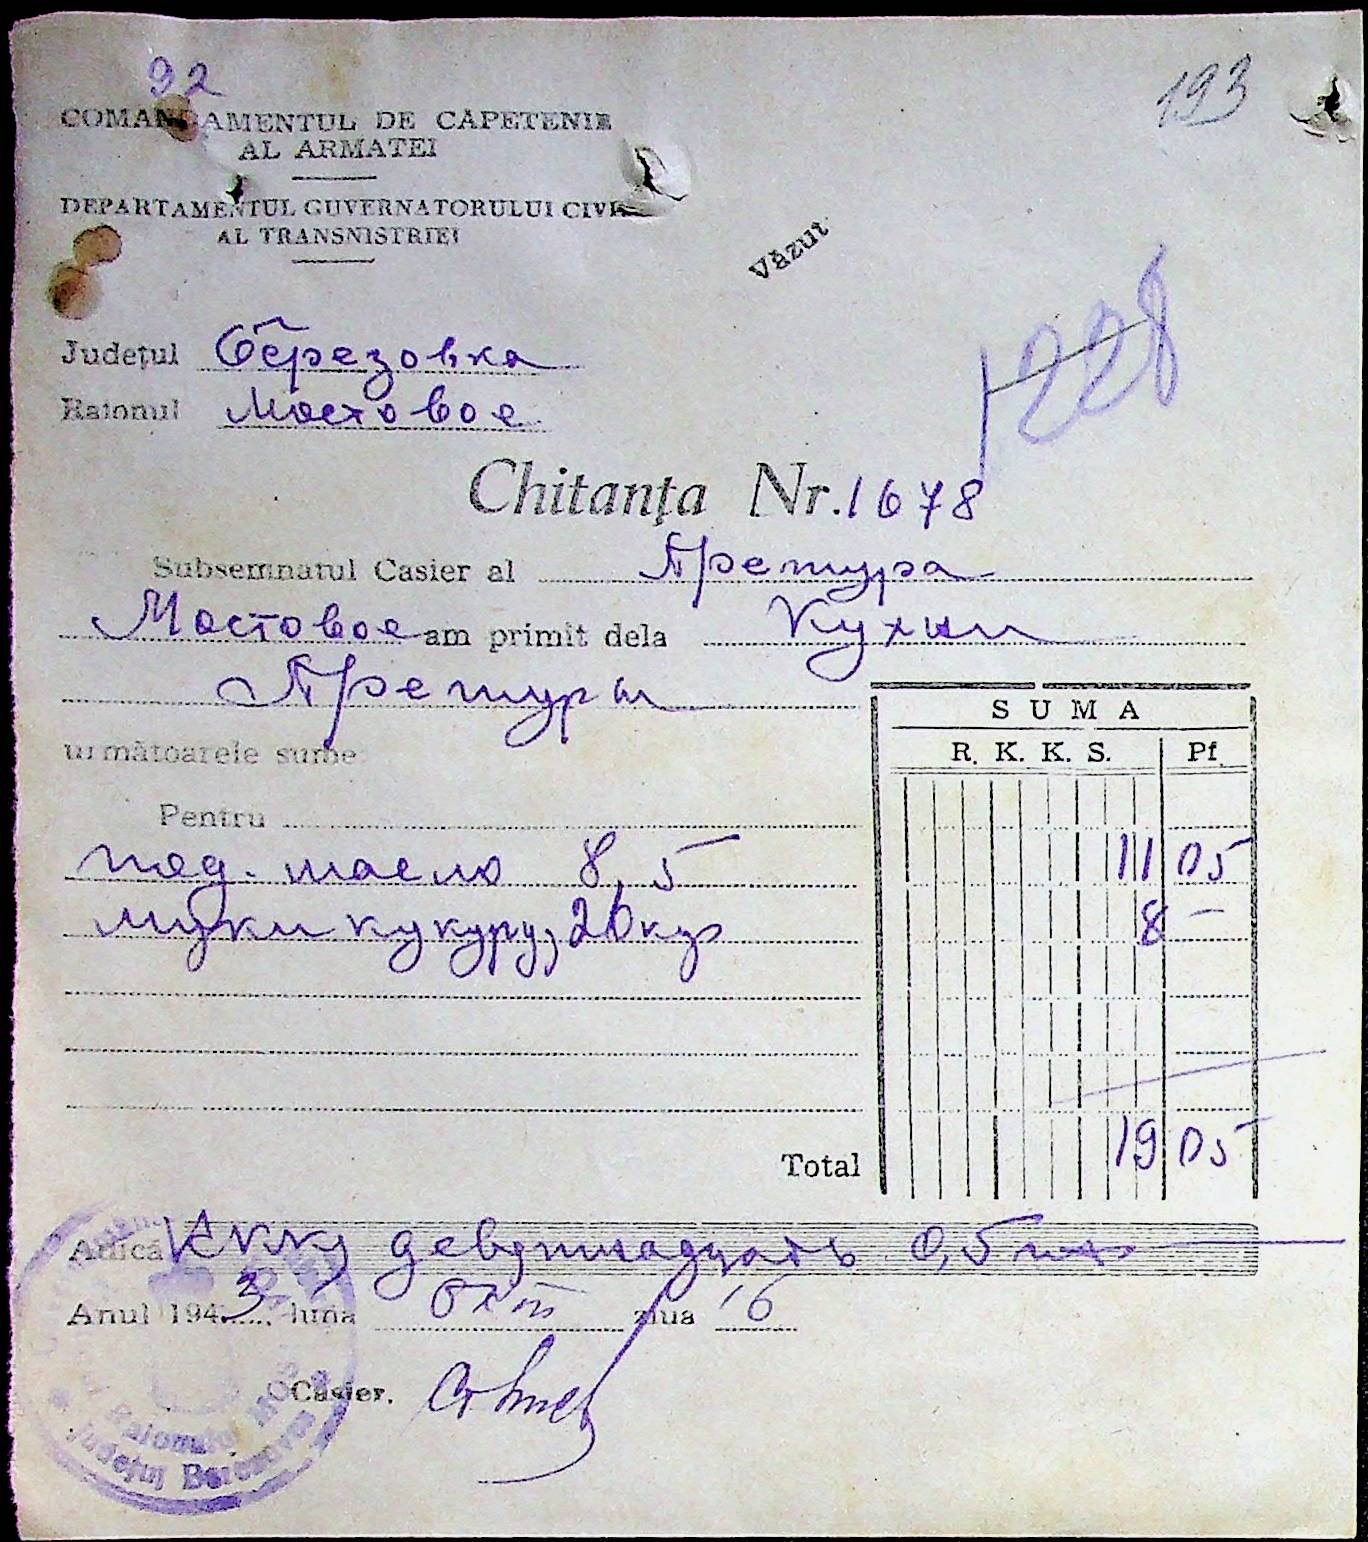 92
193
COMANDAMENTUL DE CAPETENIE
AL ARMATEI
DEPARTAMENTUL GUVERNATORULUI CIVIL
AL TRANSNISTRIEI
Văzut
228
Județul Березовка
Raionul Мостовое
Chitanța Nr. 1678
Subsemnatul Casier al Претура
Мостовое am primit dela Кухни
Претуры
următoarele sume
SUMA
R. K. K. S. Pf.
Pentru
под. масло 8,5 11 05
муки кукуруз 20 кгр 8 –
Total 19 05
Adică девятнадцать 0,5
Anul 1943, luna окт ziua 16
Casier.
Raionului MOS
Județul Berezovca